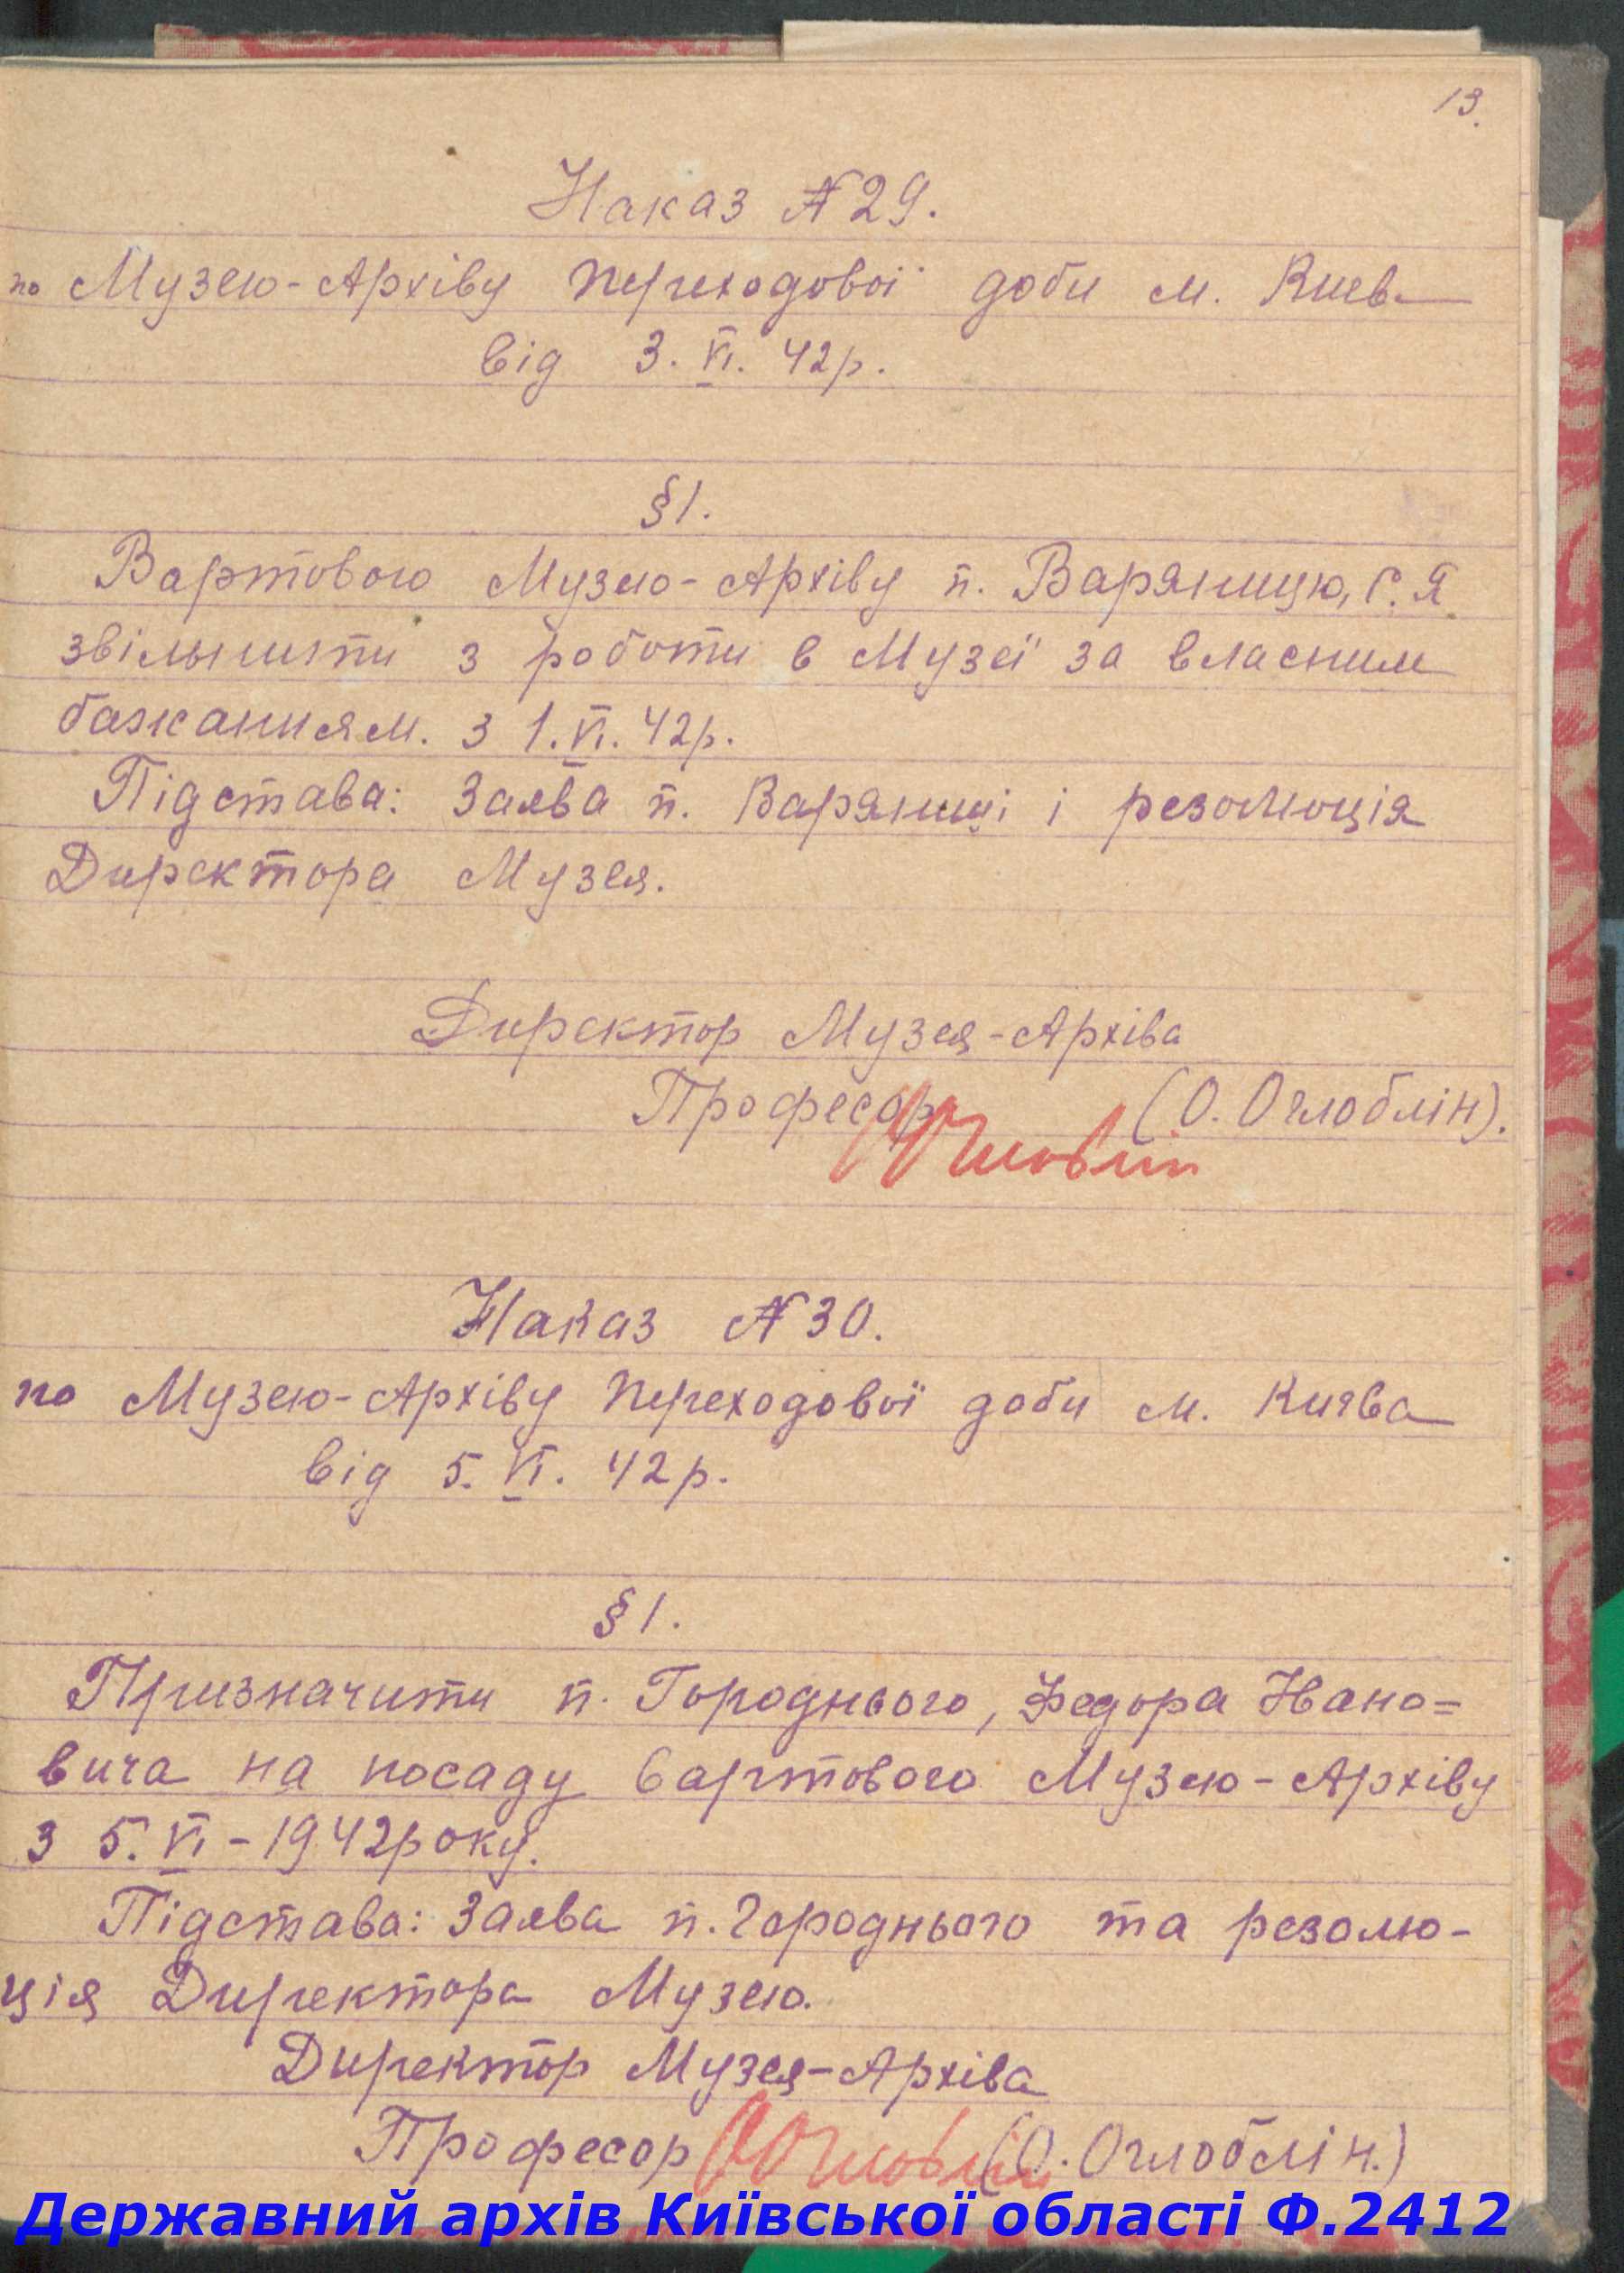 13.
Наказ № 29.
по Музею-Архіву Переходової доби м. Києва
від 3. VI. 42р.
§1.
Вартового Музею-Архіву п. Варяницю, Г. Я
звільнити з роботи в Музеї за власним
бажанням. з 1. VI. 42р.
Підстава: Заява п. Варяниці і резолюція
Директора Музея.
Директор Музея-Архіва
Професор (О. Оглоблін).
Наказ № 30.
по Музею-Архіву Переходової доби м. Києва
від 5. VI. 42р.
§1.
Призначити п. Городнього, Федора Івано=
вича на посаду вартового Музею-Архіву
з 5. VI - 1942року.
Підстава: Заява п. Городнього та резолю-
ція Директора Музею.
Директор Музея-Архіва
Професор (О. Оглоблін.)
Державний архів Київської області Ф.2412